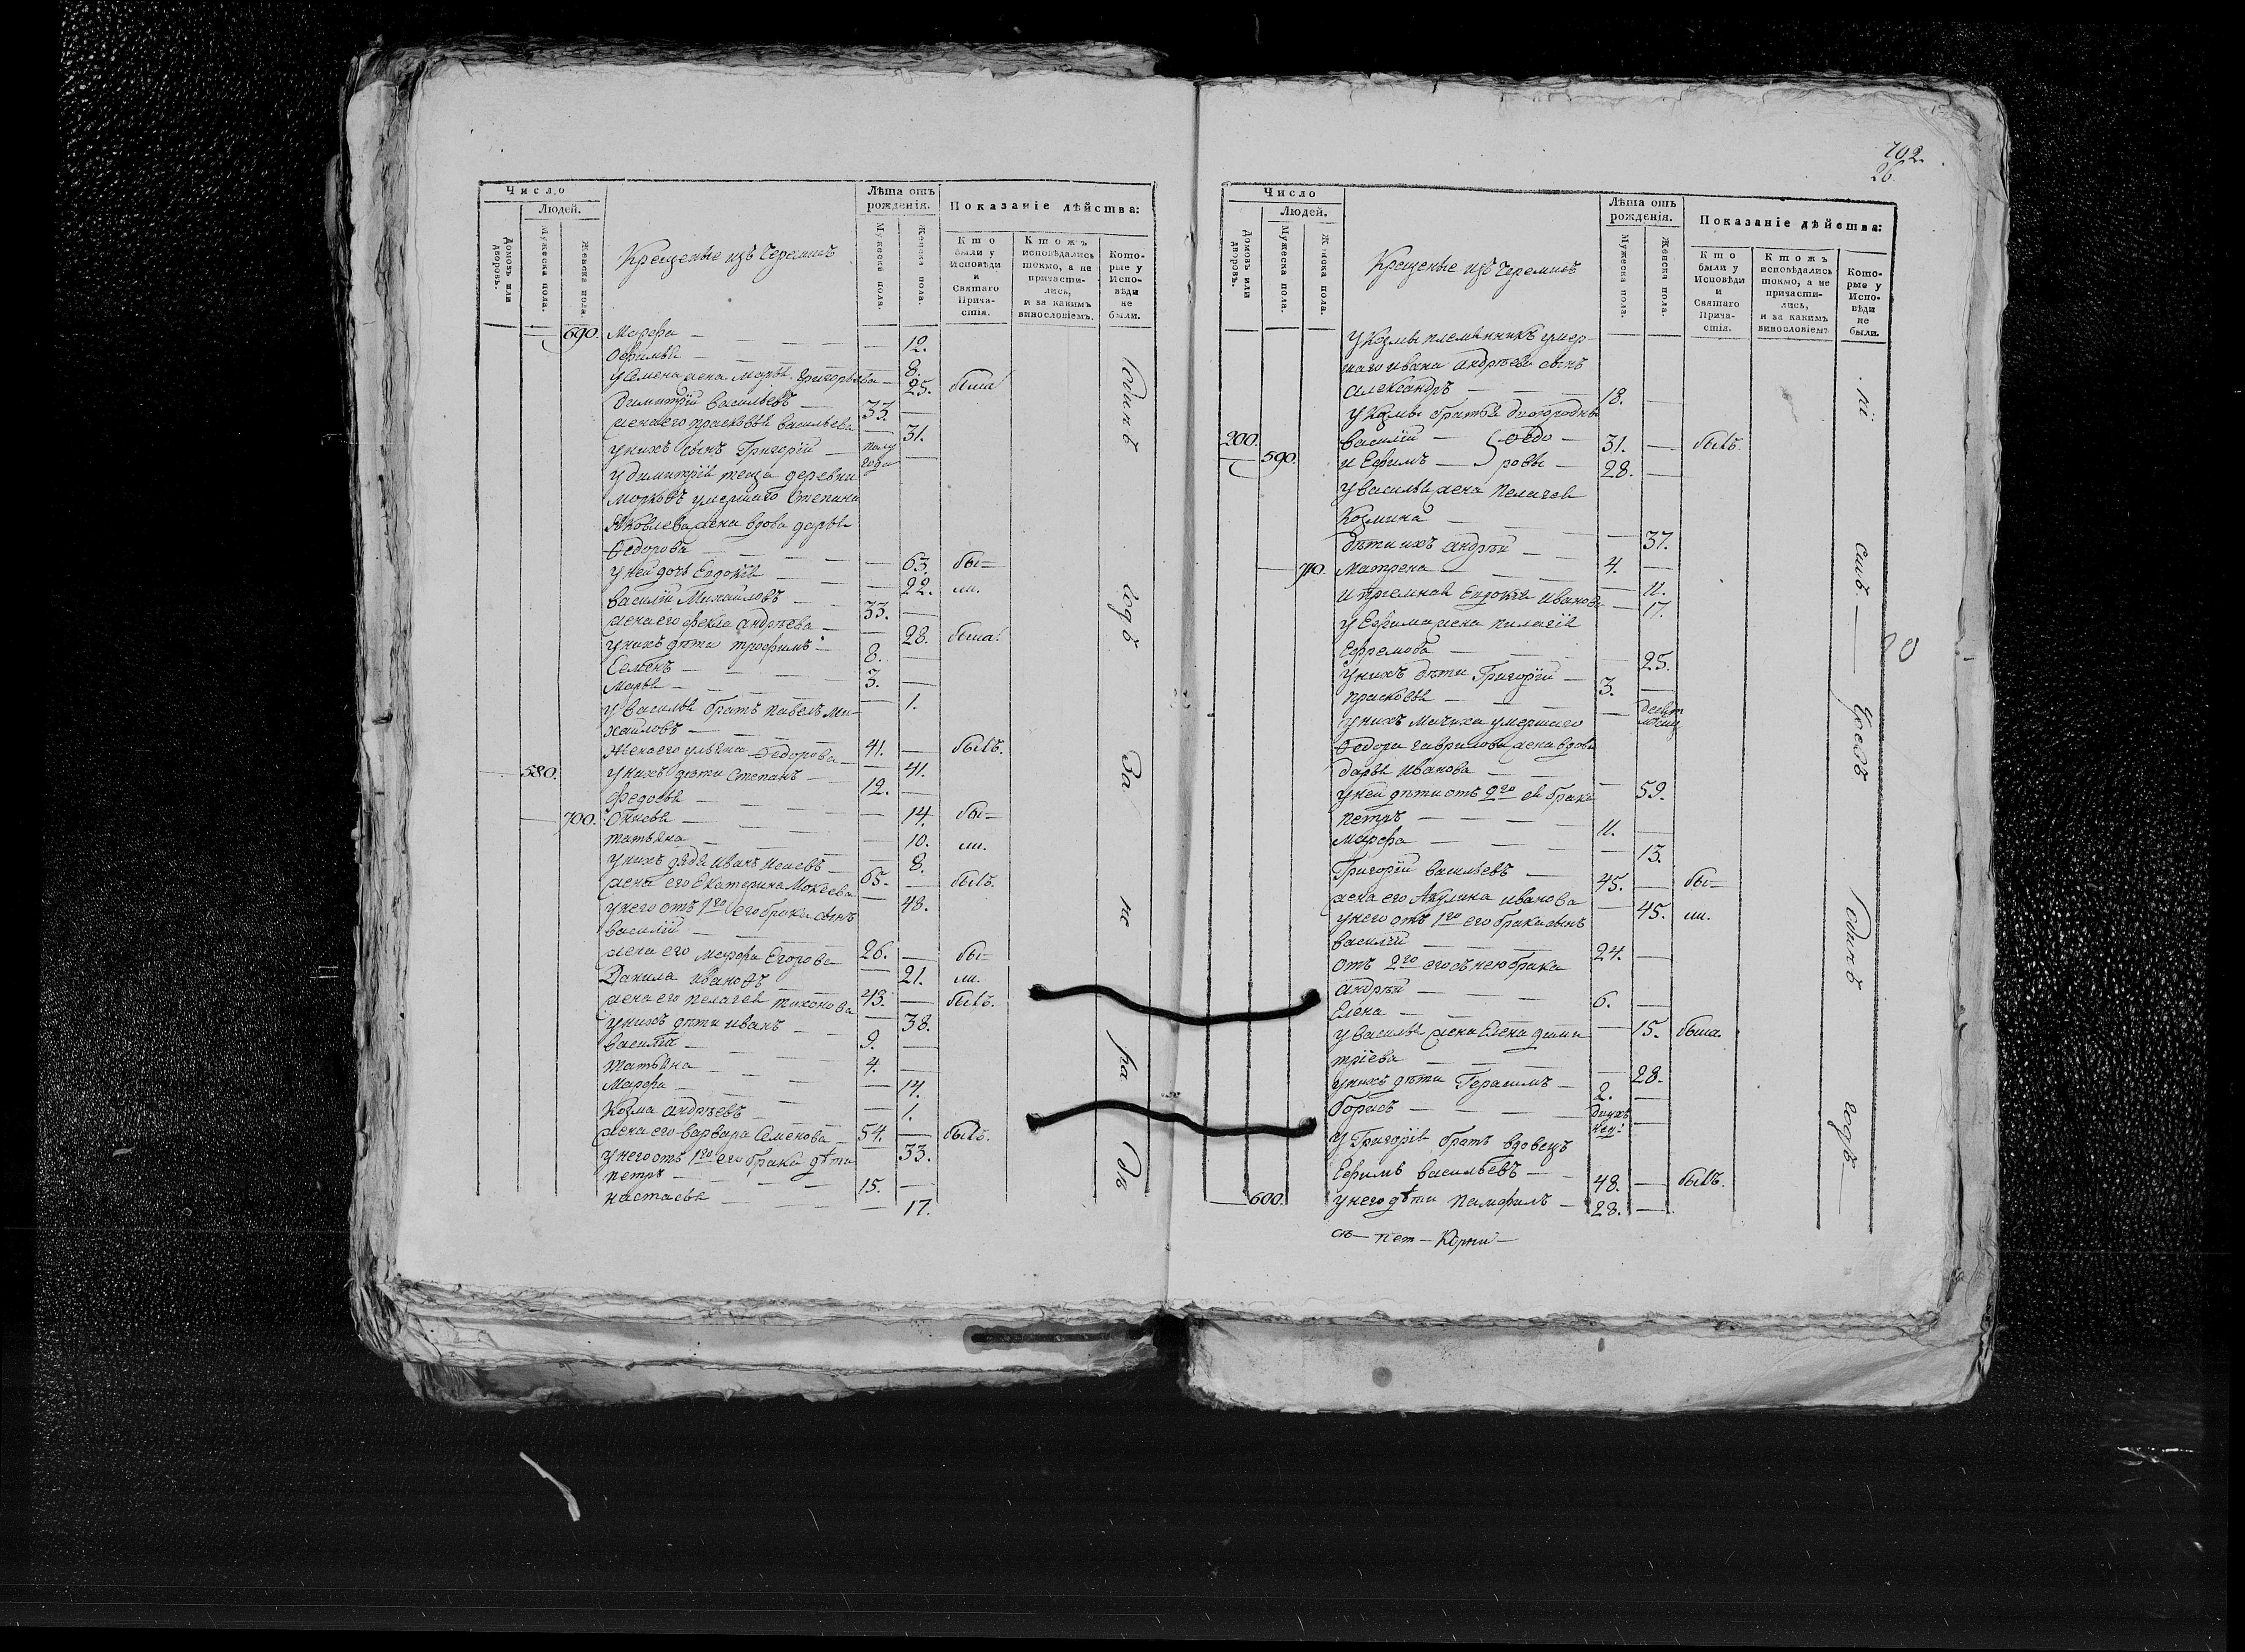 Число
Людей.
Домовъ или дворовъ.
Мужеска пола.
Женска пола.
Крещеные изъ Черемисъ
Лѣта отъ рожденія.
Мужеска пола.
Женска пола.
Показаніе дѣйства:
Кто были у Исповѣди и Святаго Причастія.
Ктожъ исповѣдались токмо, а не причастились, и за какимъ винословіемъ.
Которые у Исповѣди не были.
690. Марфа — 12.
Офимья — 8.
у Семена жена Марья Григорьева — 25. была
Димитрій Васильевъ — 33.
жена его Прасковья Васильева 31.
у нихъ сынъ Григорій — полу года
у Димитрія теща деревни
умершаго Степана
Яковлева жена вдова Дарья
Федорова — 63. бы-
у ней дочь Евдокія — 22. ли.
Василій Михайловъ — 33.
жена его Фекла Андреева — 28. была.
у нихъ дѣти Трофимъ — 8.
Семенъ — 3.
Марья — 1.
у Василья братъ Павелъ Ми-
хайловъ — 41. былъ.
жена его Ульяна Федорова — 41.
580. у нихъ дѣти Степанъ — 12.
Федосья — 14. бы-
700. — 10. ли.
Татьяна — 8.
у нихъ дядя Иванъ Исаевъ — 65. былъ.
жена его Екатерина Мокеева 48.
у него отъ 1го его брака сынъ
Василій — 26. бы-
жена его Марфа Егорова 21. ли.
Данила Ивановъ — 43. былъ.
жена его Пелагея Тихонова 38.
у нихъ дѣти Иванъ — 9.
Василій — 4.
Татьяна — 14.
Марфа — 1.
Козма Андреевъ — 54. былъ.
жена его Варвара Семенова — 33.
у него отъ 1го его брака дѣти
Петръ — 15.
Настасья — 17.
Годинъ
годъ
За
не
ра
702.
26
Число
Людей.
Домовъ или дворовъ.
Мужеска пола.
Женска пола.
Крещеные изъ Черемисъ
Лѣта отъ рожденія.
Мужеска пола.
Женска пола.
Показаніе дѣйства:
Кто были у Исповѣди и Святаго Причастія.
Ктожъ исповѣдались токмо, а не причастились, и за какимъ винословіемъ.
Которые у Исповѣди не были.
у Козмы племянникъ умер-
шаго Ивана Андреева сынъ
Александръ — 18.
у Козмы братья
200. Василій — Федо — 31. — былъ.
590. и Ефимъ — ровы — 28. —
у Василья жена Пелагея
Козмина — 37.
дѣти ихъ Андрей — 4.
710. Матрена — 11.
и приемная Евдокія Иванова 17.
у Ефима жена Пилагія
Ефремова — 25.
у нихъ дѣти Григорій — 3.
Прасковья —
у нихъ мачиха умершаго
Федора Гаврилова жена вдова
Дарья Иванова — 59.
у ней дѣти отъ 2го ея брака
Петръ — 11.
Марфа — 13.
Григорій Васильевъ — 45. — бы-
жена его Акулина Иванова 45. ли.
у него отъ 1го его брака сынъ
Василій — 24.
отъ 2го его съ нею брака
Андрей — 6.
Елена — 15. была.
у Василья жена Елена Дими-
тріева — 28.
у нихъ дѣти Герасимъ — 2.
Борисъ — нед:
у Григорія братъ вдовецъ
Ефимъ Васильевъ — 48. — былъ.
600. у него дѣти Памфилъ — 28. —
годъ